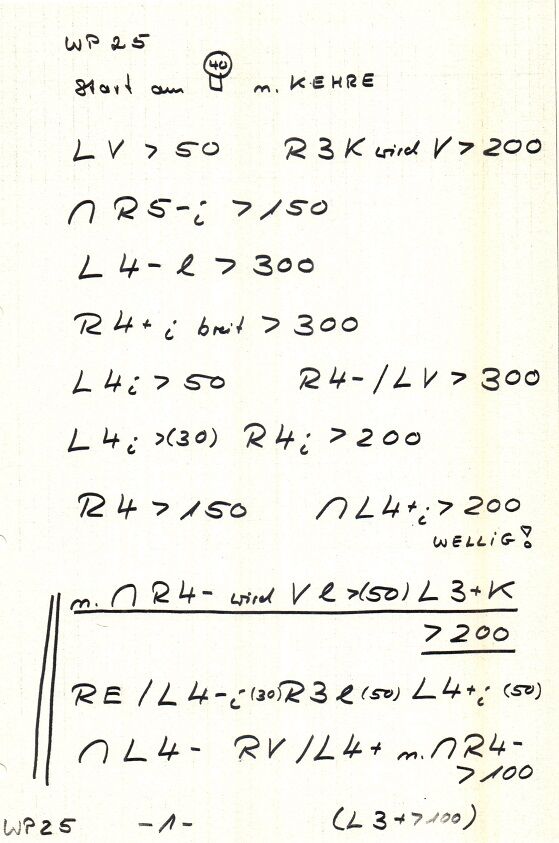 WP 25
Start am 40 n. KEHRE
L V > 50 R 3 K wird V > 200
∩ R 5 - i > 150
L 4 - l > 300
R 4 + i breit > 300
L 4 i > 50 R 4 - / L V > 300
L 4 i >(30) R 4 i > 200
R 4 > 150 ∩ L 4 + i > 200
WELLIG!
n. ∩ R 4 - wird V l >(50) L 3 + K
> 200
R E / L 4 - i (30) R 3 l (50) L 4 + i (50)
∩ L 4 - R V / L 4 + n. ∩ R 4 -
> 100
WP 25 - 1 - (L 3 + > 100)